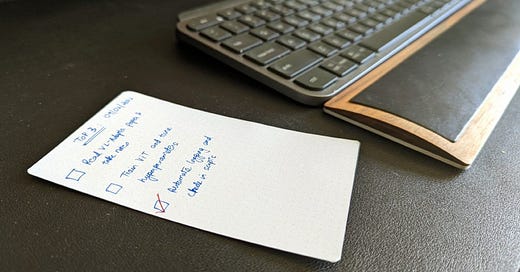 Top 3
Read VL-Adapter paper &
take notes
Train ViT and tune
hyperparameters
Automate logging and
check in